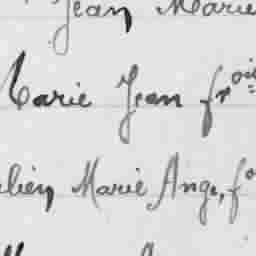 Jean Marie
Marie Jean frois
Marie Ange, f